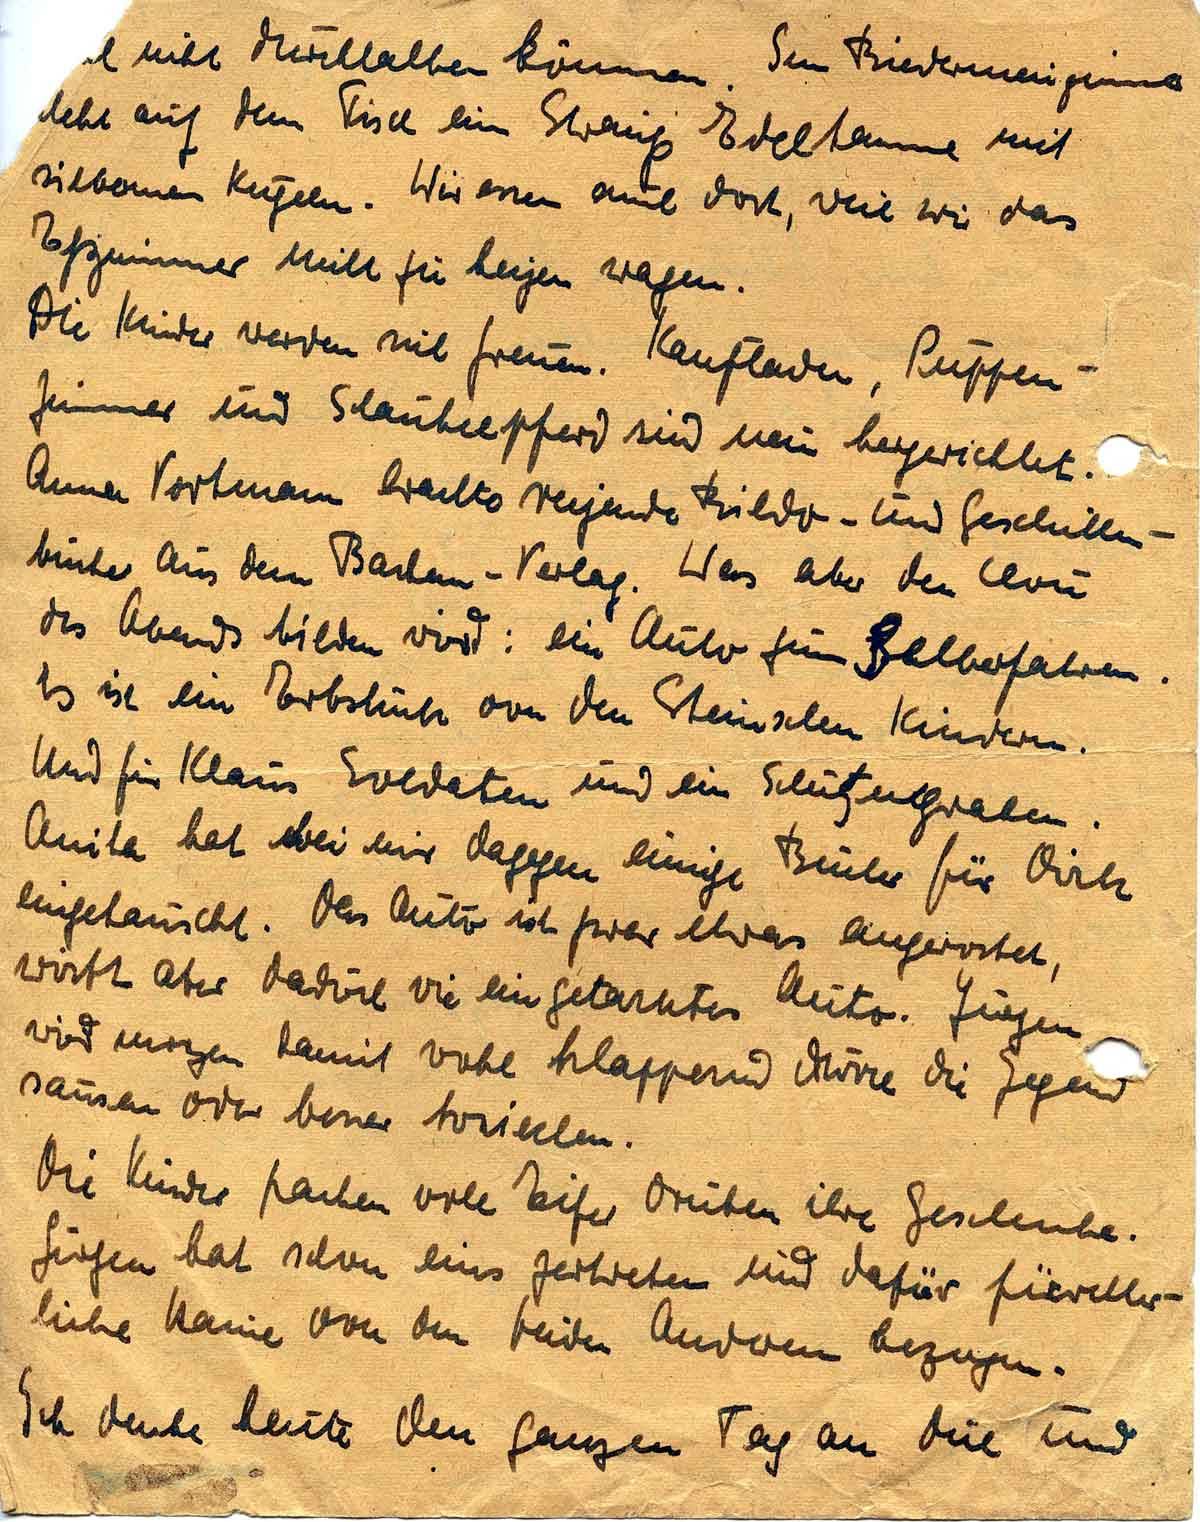 nicht durchhalten können. Im Biedermeierzimmer
steht auf dem Tisch ein Zweig Edeltanne mit
silbernen Kugeln. Wir essen auch dort, weil wir das
Eßzimmer nicht zu heizen wagen.
Die Kinder werden sich freuen. Kaufladen, Puppen-
zimmer und Schaukelpferd sind neu hergerichtet.
Anna Vortmann brachte reizende Bilder- und Geschichten-
bücher aus dem Bachem-Verlag. Was aber den Clou
des Abends bilden wird: ein Auto zum Selberfahren.
Es ist ein Erbstück von den Steinschen Kindern.
Und für Klaus Soldaten und ein Schützengraben.
Anita hat bei mir dagegen einige Bücher für Dirk
eingetauscht. Das Auto ist zwar etwas angerostet,
wirkt aber dadurch wie ein getarntes Auto. Jürgen
wird morgen damit wohl klappernd durch die Gegend
sausen oder besser
Die Kinder packen voll Eifer drüben ihre Geschenke.
Jürgen hat schon eins zertreten und dafür fürchter-
liche Haue von den beiden Anderen bezogen.
Ich denke heute den ganzen Tag an dich und